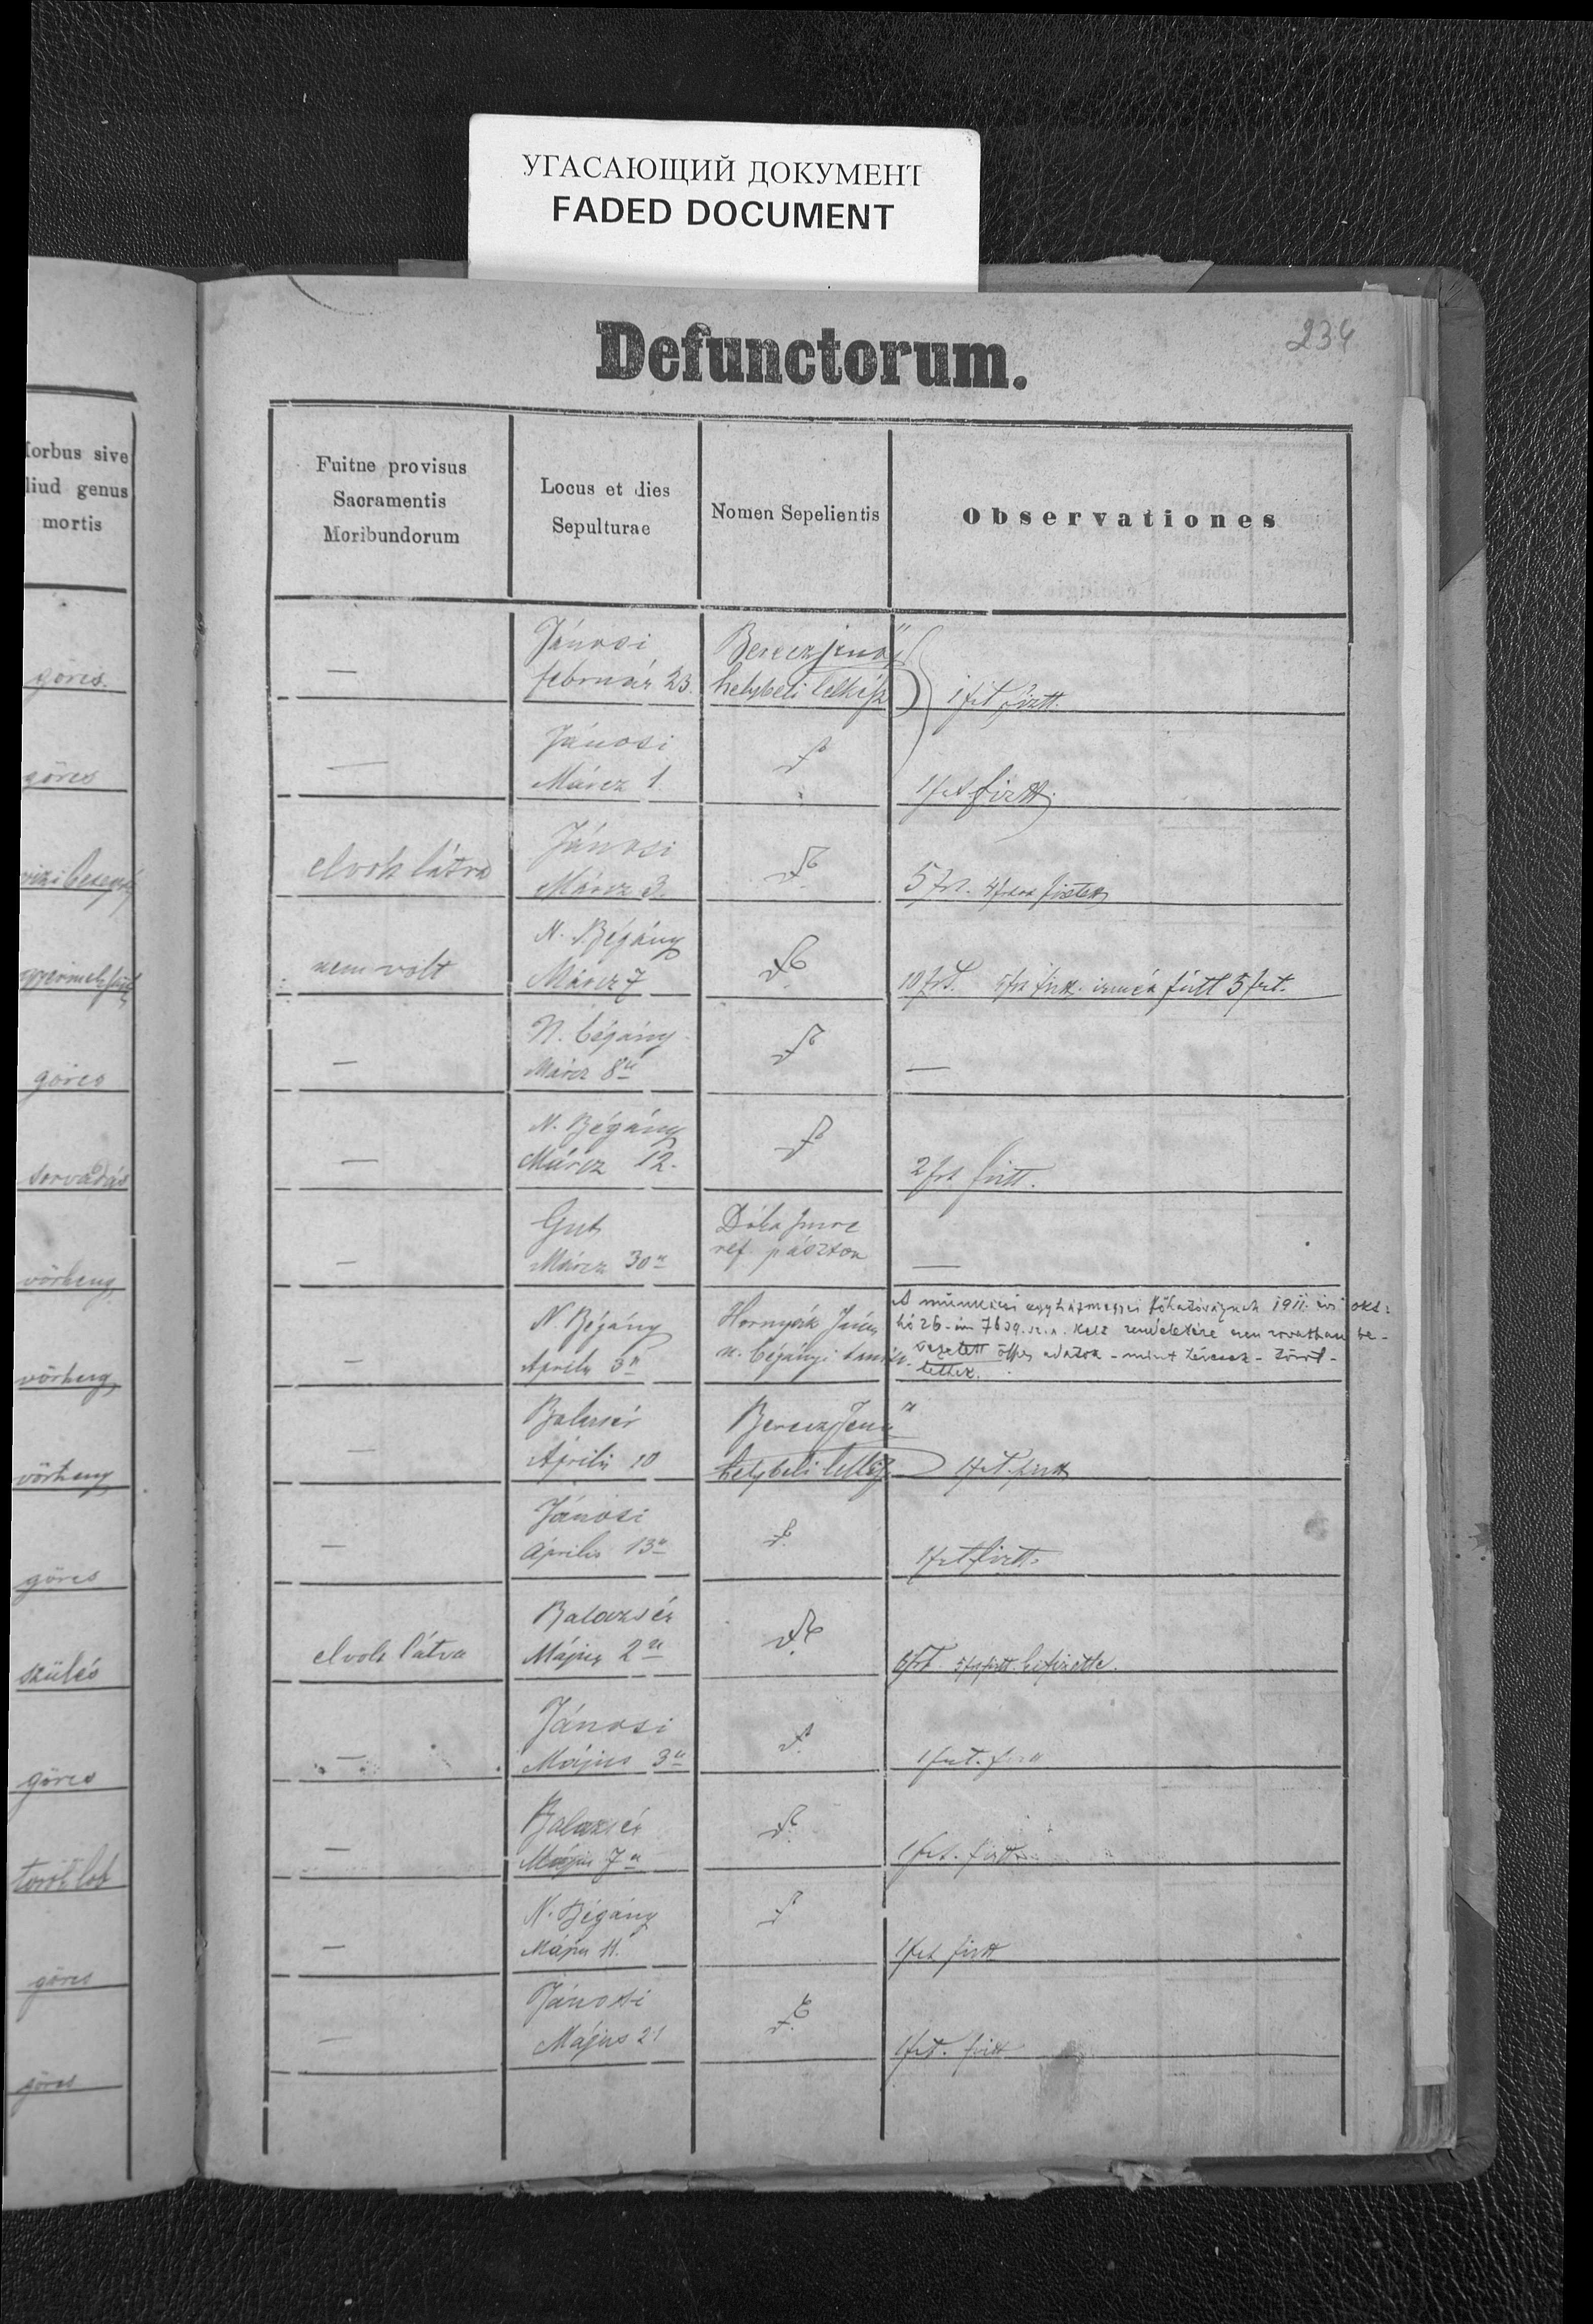 УГАСАЮЩИЙ ДОКУМЕНТ
FADED DOCUMENT
Defunctorum.
234
orbus sive
liud genus
mortis
Fuitne provisus
Sacramentis
Moribundorum
Locus et dies
Sepulturae
Nomen Sepelientis
Observationes
görcs.
—
Jánosi
február 23.
Berecz Jenő
helybeli lelkész
1 frt fizett.
görcs
—
Jánosi
Márcz 1.
1 frt fizett.
elvolt látva
Jánosi
Márcz 3.
5 frt.
nem volt
N. Bégány
Márcz 7
10 frt. 5 frt.
görcs
—
N. bégány
Márcz 8
—
sorvadás
—
N. Bégány
Márcz 12.
2 frt fizett.
vörheny
—
Gut
Márcz 30
Dóka Imre
ref. pásztor
—
vörheny
—
N. Bégány
Április 3
Hornyák
n. bégányi
A munkácsi egyházmegyei főhatóságnak 1911. évi okt.
hó 26-án 7639. sz. a. kelt rendeletére ezen rovatban be-
vezetett összes adatok - mint tévesek - töröl-
tettek.
vörheny
—
Balazsér
Április 10
Berecz Jenő
helybeli lelkész
1 frt. fizett
görcs
—
Jánosi
Április 13
1 frt fizett.
szülés
elvolt látva
Balazsér
Május 2
6 frt
görcs
—
Jánosi
Május 3
1 frt.
torok lob
—
Balazsér
Május 7
1 frt. fizett
görcs
—
N. Bégány
Május 11.
1 frt fizett
görcs
—
Jánosi
Május 21
1 frt. fizett